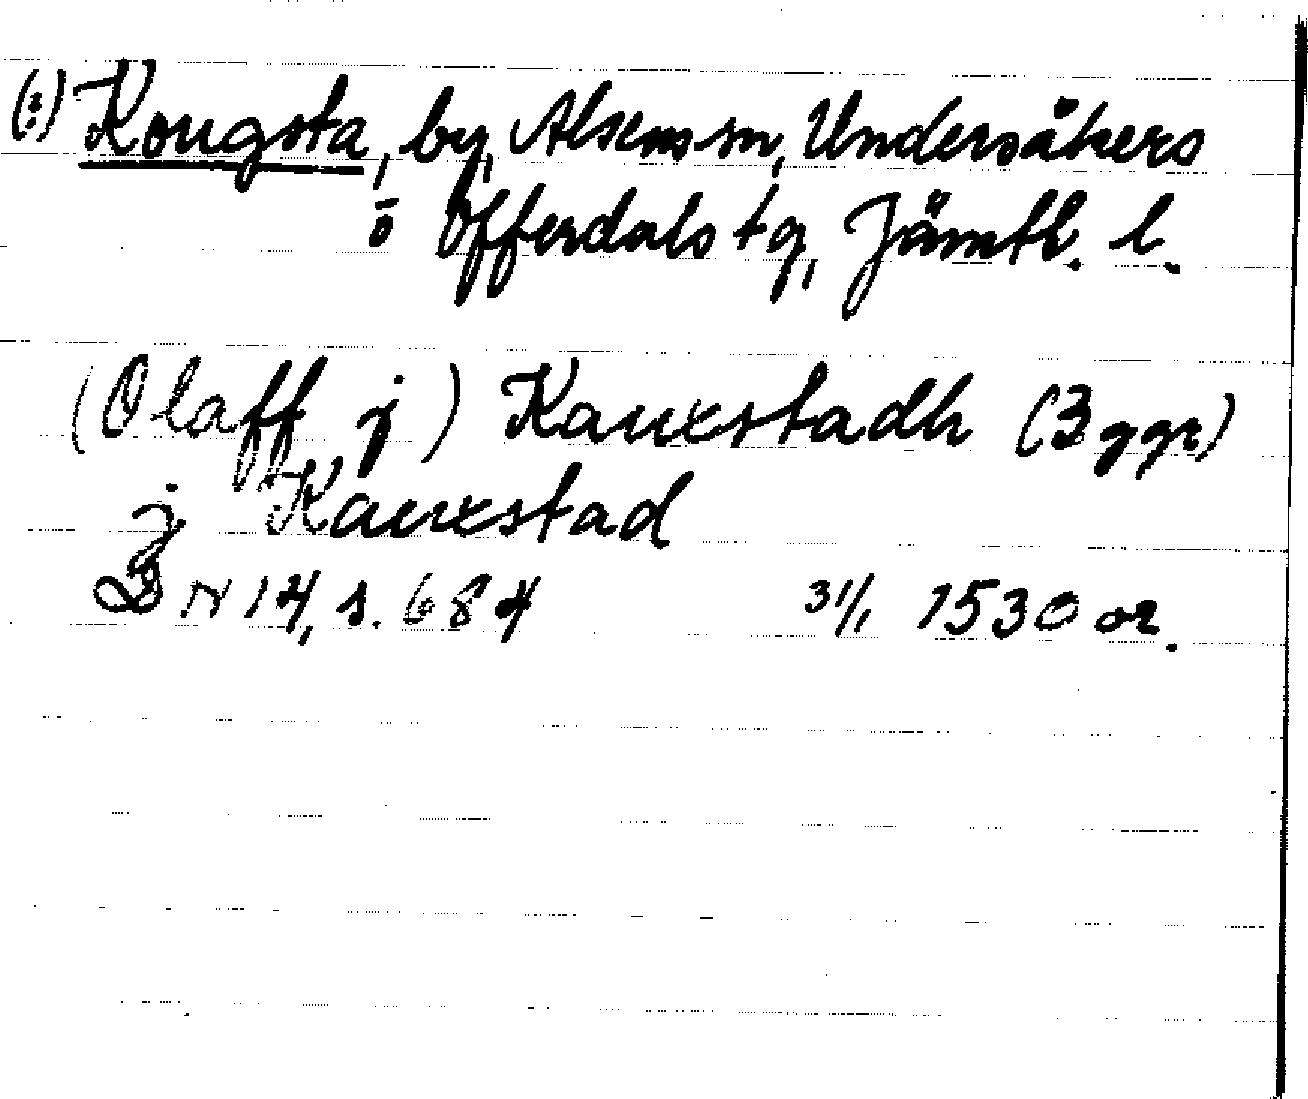 (:) Kougsta, by, Alsens sn, Undersåkers
o Offerdals tg, Jämtl. l.
(Olaff j) Kauxstadh (3 ggr)
j Kauxstad
DN 14, s. 684 31/1 1530 or.